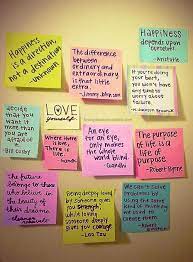 Happiness
is a direction,
not a destination
-unknown
The difference
between
ordinary and
extraordinary
is that little
extra.
-Jimmy Johnson
Happiness
depends upon
ourselves.
-Aristotle
If you're doing
your best,
you won't have
time to
worry about
failure.
decide
that you
want it
more than
you are
afraid of
it.
-Bill Cosby
LOVE
yourself.
Where there
is love,
There is
life.
An eye
for an eye,
only makes
the whole
world blind.
-Gandhi
The purpose
of life is a
life of
purpose.
-Robert Byrne
The future
belongs to those
who believe in
the beauty of
their dreams.
Being deeply loved
by someone gives
you strength,
while loving
someone deeply
gives you courage
-Lao Tzu
We can't solve
problems by
using the same
kind of thinking
we used when
we created
them.